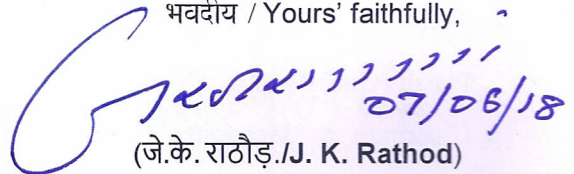 भवदीय / Yours' faithfully,
07/06/18
(जे.के. राठौड़./J. K. Rathod)